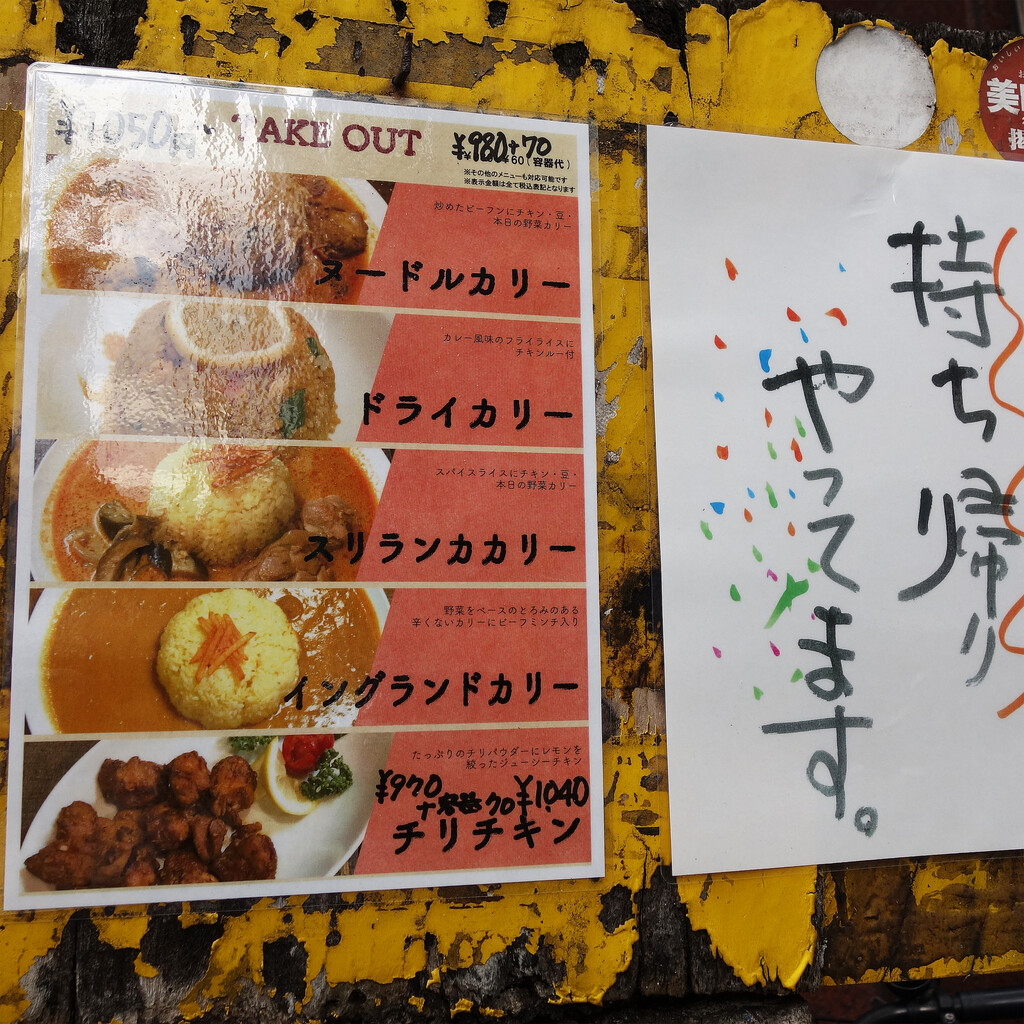 ¥1050円
TAKE OUT
¥980+70
¥60(容器代)
※その他のメニューも対応可能です
※表示金額は全て税込表記となります
炒めたビーフンにチキン・豆・
本日の野菜カリー
ヌードルカリー
カレー風味のフライライスに
チキンルー付
ドライカリー
スパイスライスにチキン・豆・
本日の野菜カリー
スリランカカリー
野菜をベースのとろみのある
辛くないカリーにビーフミンチ入り
イングランドカリー
たっぷりのチリパウダーにレモンを
絞ったジューシーチキン
¥970
+容器70
¥1040
チリチキン
持ち帰り
やってます。
おいしい
美